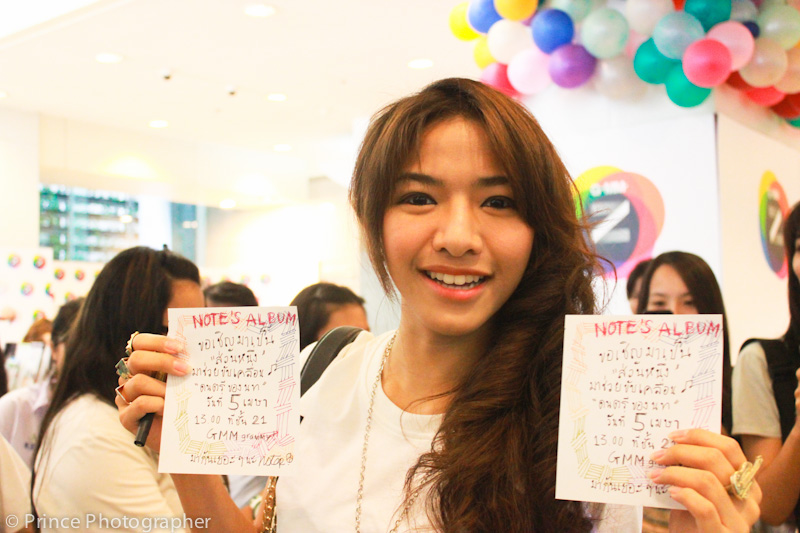 NOTE'S ALBUM
ขอเชิญมาเป็น
"ส่วนหนึ่ง"
มาช่วยขับเคลื่อน
"ดนตรีของนท"
วันที่ 5 เมษา
13.00 ที่ชั้น 21
GMM grammy
มากันเยอะๆ นะ
NOTE'S ALBUM
ขอเชิญมาเป็น
"ส่วนหนึ่ง"
มาช่วยขับเคลื่อน
"ดนตรีของนท"
วันที่ 5 เมษา
13.00 ที่ชั้น 21
GMM
มากันเยอะๆ
Z
© Prince Photographer